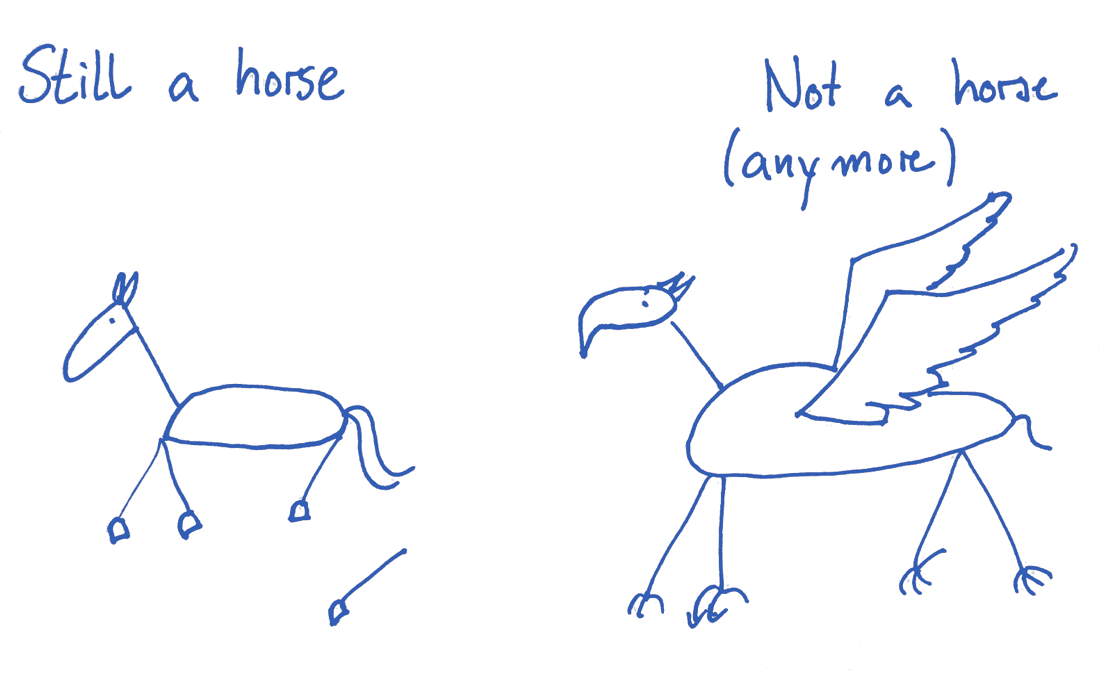 Still a horse
Not a horse
(any more)